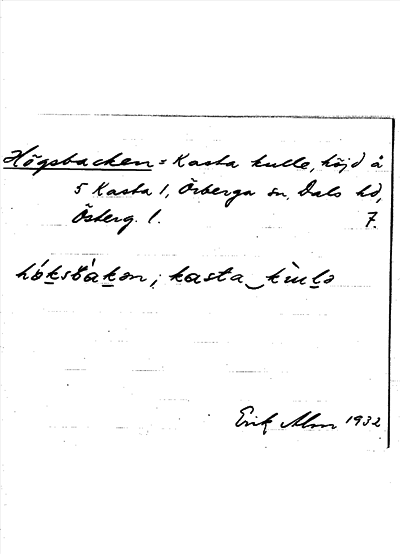 Högsbacken = Kasta kulle, höjd å
5 Kasta 1, Örberga sn, Dals hd,
Österg. l. 7.
kasta
Erik Alm 1932